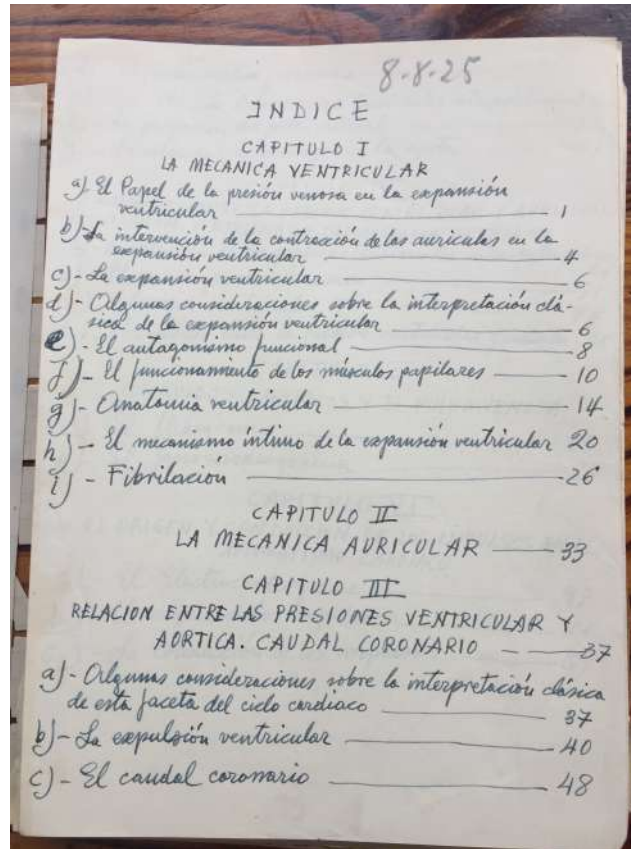 8-8-25
INDICE
CAPITULO I
LA MECANICA VENTRICULAR
a)- El Papel de la presión venosa en la expansión
ventricular — 1
b)- La intervención de la contracción de las auriculas en la
expansión ventricular — 4
c)- La expansión ventricular — 6
d)- Algunas consideraciones sobre la interpretación clá-
sica de la expansión ventricular — 6
e)- El antagonismo funcional — 8
f)- El funcionamiento de los músculos papilares — 10
g)- Anatomia ventricular — 14
h)- El mecanismo íntimo de la expansión ventricular 20
i) - Fibrilación — 26
CAPITULO II
LA MECANICA AURICULAR — 33
CAPITULO III
RELACION ENTRE LAS PRESIONES VENTRICULAR Y
AORTICA. CAUDAL CORONARIO — 37
a)- Algunas consideraciones sobre la interpretación clásica
de esta faceta del ciclo cardiaco — 37
b)- La expulsión ventricular — 40
c) - El caudal coronario — 48